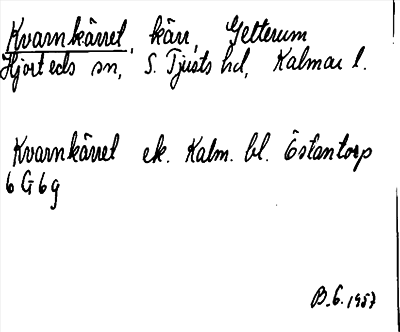 Kvarnkärret, kärr, Getterum
Hjorteds sn, S. Tjusts hd, Kalmar l.
Kvarnkärret ek. Kalm. bl. Östantorp
6 G 6 g
B.G. 1957